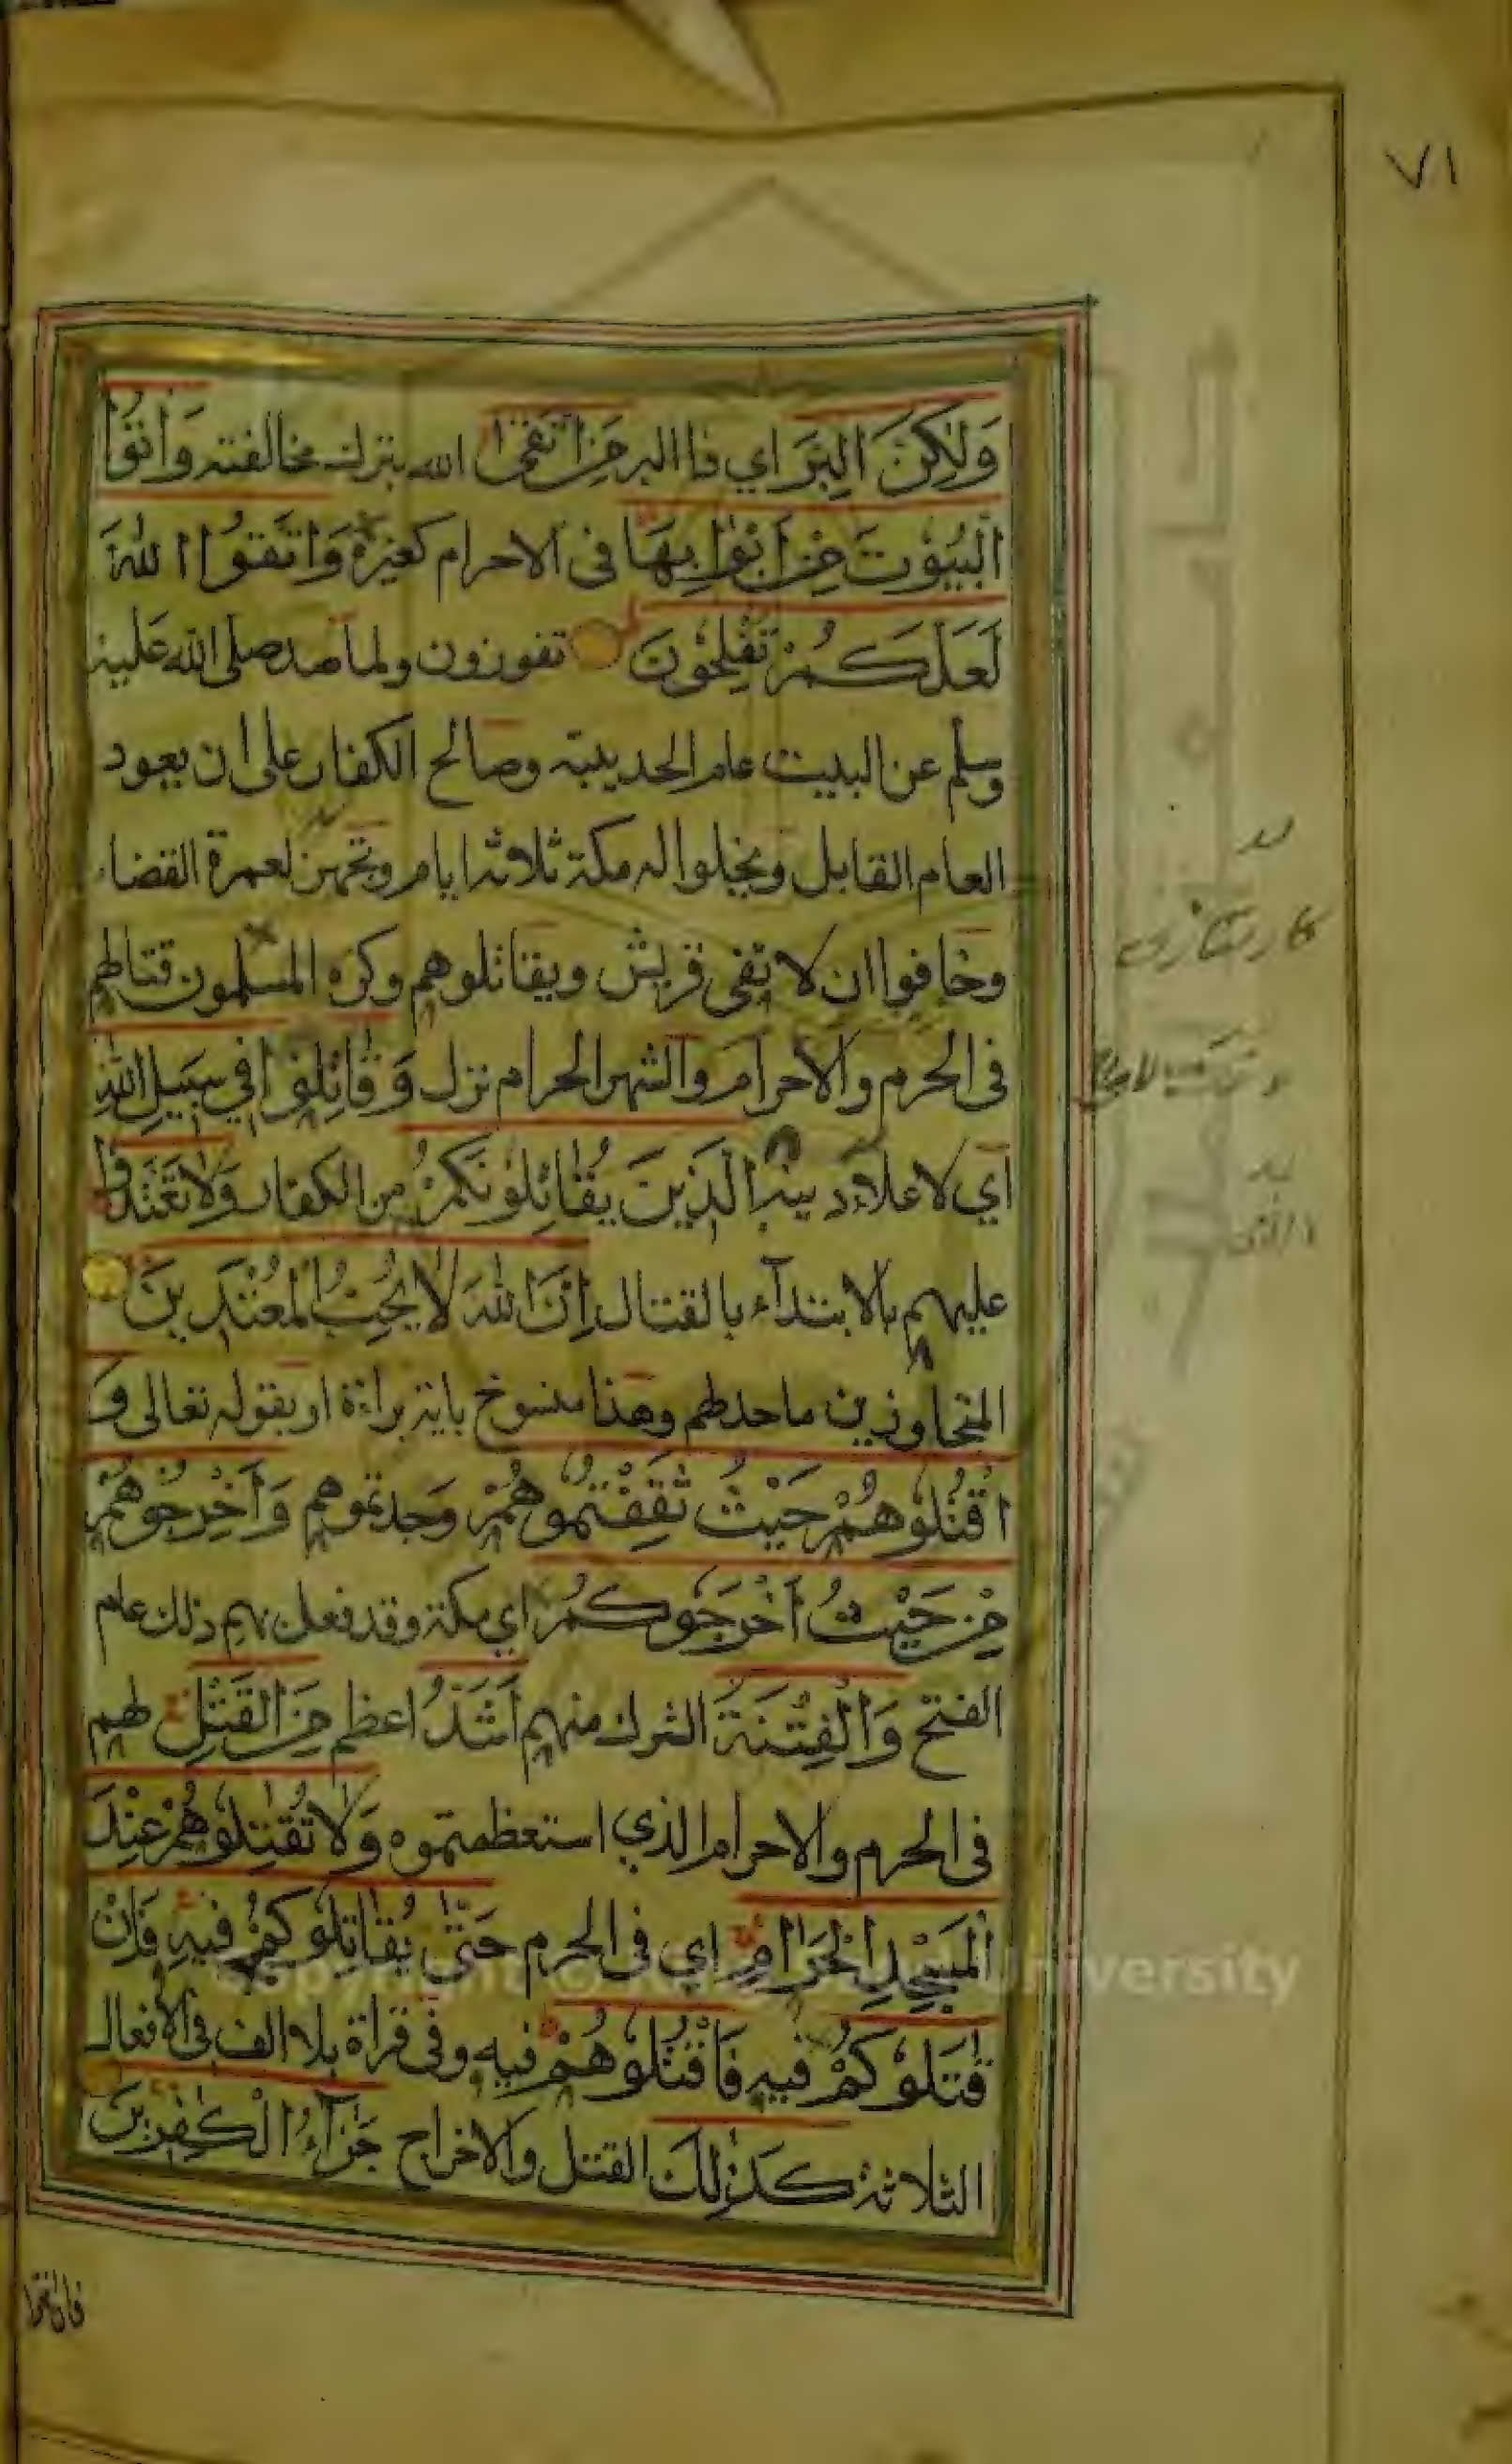 ٧١
وَلٰكِنَّ الْبِرَّ اي ذا البر مَنِ اتَّقٰى الله بترك مخالفته وَأْتُوا
الْبُيُوْتَ مِنْ اَبْوَابِهَا في الاحرام كغيره وَاتَّقُوا اللّٰهَ
لَعَلَّكُمْ تُفْلِحُوْنَ تفوزون ولما صد صلى الله عليه
وسلم عن البيت عام الحديبية وصالح الكفار على ان يعود
العام القابل ويخلوا له مكة ثلاثة ايام وتجهز لعمرة القضاء
وخافوا ان لا تفي قريش ويقاتلوهم وكره المسلمون قتالهم
في الحرم والاحرام والشهر الحرام نزل وَقَاتِلُوْا فِي سَبِيلِ اللّٰهِ
اي لاعلاء دينه الَّذِينَ يُقَاتِلُوْنَكُمْ من الكفار وَلَا تَعْتَدُوا
عليهم بالابتداء بالقتال اِنَّ اللّٰهَ لَا يُحِبُّ الْمُعْتَدِينَ
المتجاوزين ما حد لهم وهذا منسوخ باية براءة او بقوله تعالى وَ
اقْتُلُوْهُمْ حَيْثُ ثَقِفْتُمُوْهُمْ وجدتموهم وَاَخْرِجُوْهُمْ
مِنْ حَيْثُ اَخْرَجُوكُمْ اي مكة وقد فعل بهم ذلك عام
الفتح وَالْفِتْنَةُ الشرك منهم اَشَدُّ اعظم مِنَ الْقَتْلِ لهم
في الحرم والاحرام الذي استعظمتموه وَلَا تُقٰتِلُوْهُمْ عِنْدَ
الْمَسْجِدِ الْحَرَامِ اي في الحرم حَتّٰى يُقَاتِلُوْكُمْ فِيهِ فَاِنْ
قٰتَلُوْكُمْ فيه فَاقْتُلُوْهُمْ فيه وفي قراة بلا الف في الافعال
الثلاثة كَذٰلِكَ القتل والاخراج جَزَآءُ الْكٰفِرِينَ
فان انتهوا